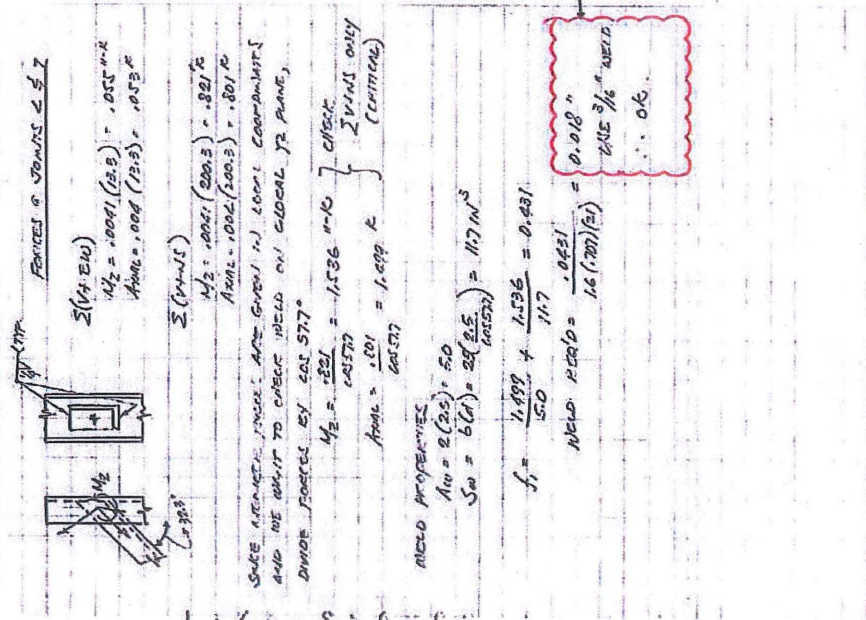 TYP.
FORCES @ JOINTS 2 & 7
Σ(V+EW)
Mz = .0041(13.3) = .055 "-K
AXIAL = .004(13.3) = .053 K
Σ(V+NS)
Mz = .0041(200.3) = .821 "K
AXIAL = .004(200.3) = .801 K
MEMBER FORCES ARE GIVEN IN LOCAL COORDINATES
AND WE WANT TO CHECK WELD ON GLOBAL YZ PLANE,
DIVIDE FORCES BY COS 57.7°
Mz = .821 / COS 57.7 = 1.536 "-K
AXIAL = .801 / COS 57.7 = 1.499 K
CHECK
ΣV+NS ONLY
(CRITICAL)
Mz
WELD PROPERTIES
Aw = 2(2.5) = 5.0
Sw = b(d) = (2.5 / COS 57.7) = 11.7 IN³
f₁ = 1.499 / 5.0 + 1.536 / 11.7 = 0.431
WELD REQ'D = .0431 / 1.6(.707)(21) = 0.018"
USE 3/16" WELD
∴ OK.